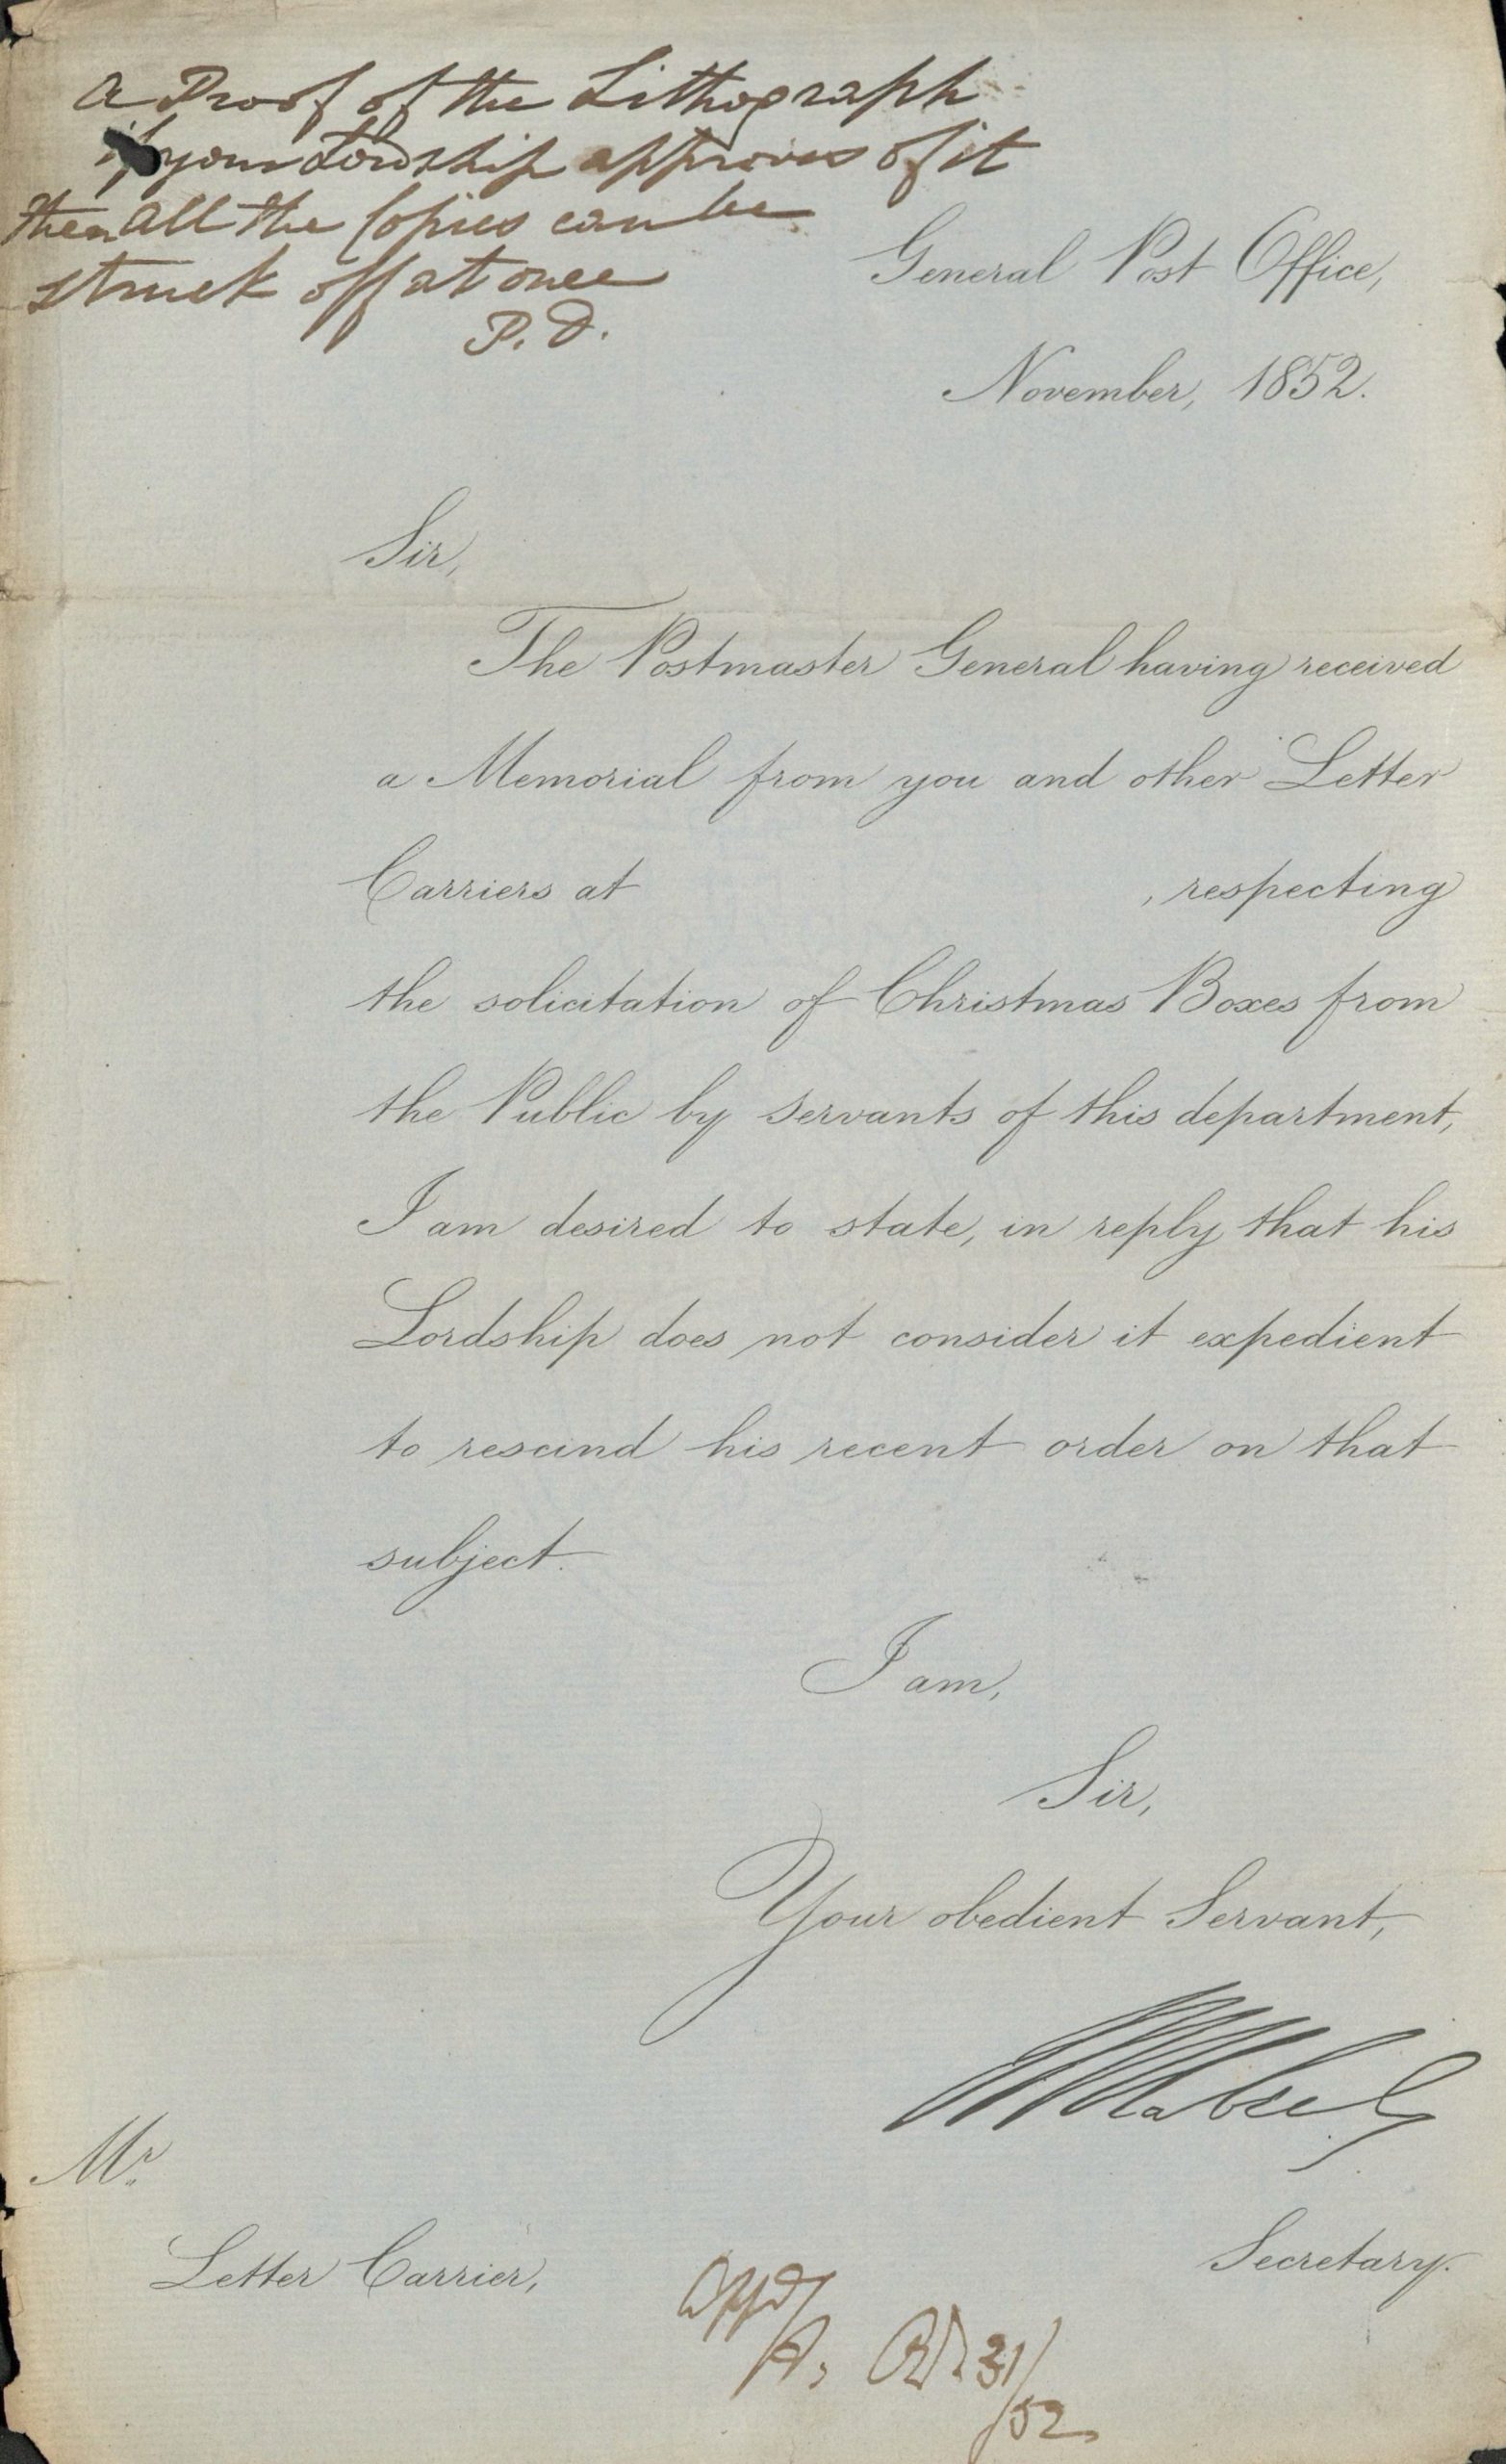 A Proof of the Lithograph
if your Lordship approves of it
then all the Copies can be
struck off at once
P. D.
General Post Office,
November, 1852.
Sir,
The Postmaster General having received
a Memorial from you and other Letter
Carriers at , respecting
the solicitation of Christmas Boxes from
the Public by servants of this department,
I am desired to state, in reply that his
Lordship does not consider it expedient
to rescind his recent order on that
subject.
I am,
Sir,
Your obedient Servant,
Secretary.
Mr.
Letter Carrier,
Appd
H. 31/
52